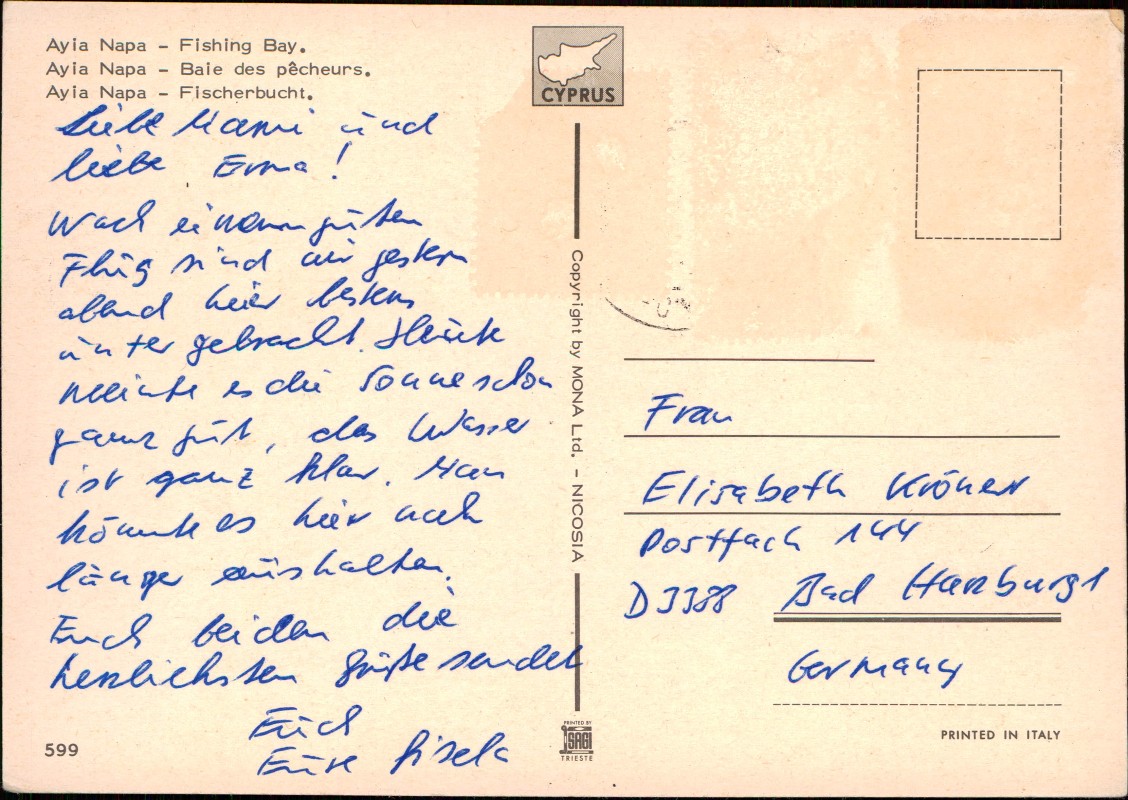 Ayia Napa - Fishing Bay.
Ayia Napa - Baie des pêcheurs.
Ayia Napa - Fischerbucht.
Liebe Mami und
liebe Erna!
Nach einem guten
Flug sind wir gestern
abend hier bestens
untergebracht. Heute
meinte es die Sonne schon
ganz gut, das Wasser
ist ganz klar. Man
könnte es hier noch
länger aushalten.
Euch beiden die
herzlichsten Grüße sendet
Euch
Eure Gisela
599
CYPRUS
Copyright by MONA Ltd. - NICOSIA
PRINTED BY
SAGI
TRIESTE
Frau
Elisabeth Kröner
Postfach 144
D 3388 Bad Harzburg 1
Germany
PRINTED IN ITALY